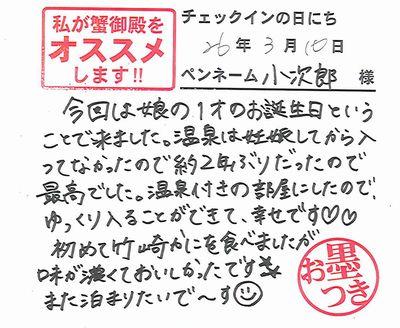 私が蟹御殿を
オススメ
します!!
チェックインの日にち
26年3月10日
ペンネーム 小次郎 様
今回は娘の1才のお誕生日という
ことで来ました。温泉は妊娠してから入
ってなかったので約2年ぶりだったので
最高でした。温泉付きの部屋にしたので、
ゆっくり入ることができて、幸せです♡♡
初めて竹崎かにを食べましたが
味が濃くておいしかったです★
また泊まりたいで〜す☺
お墨つき